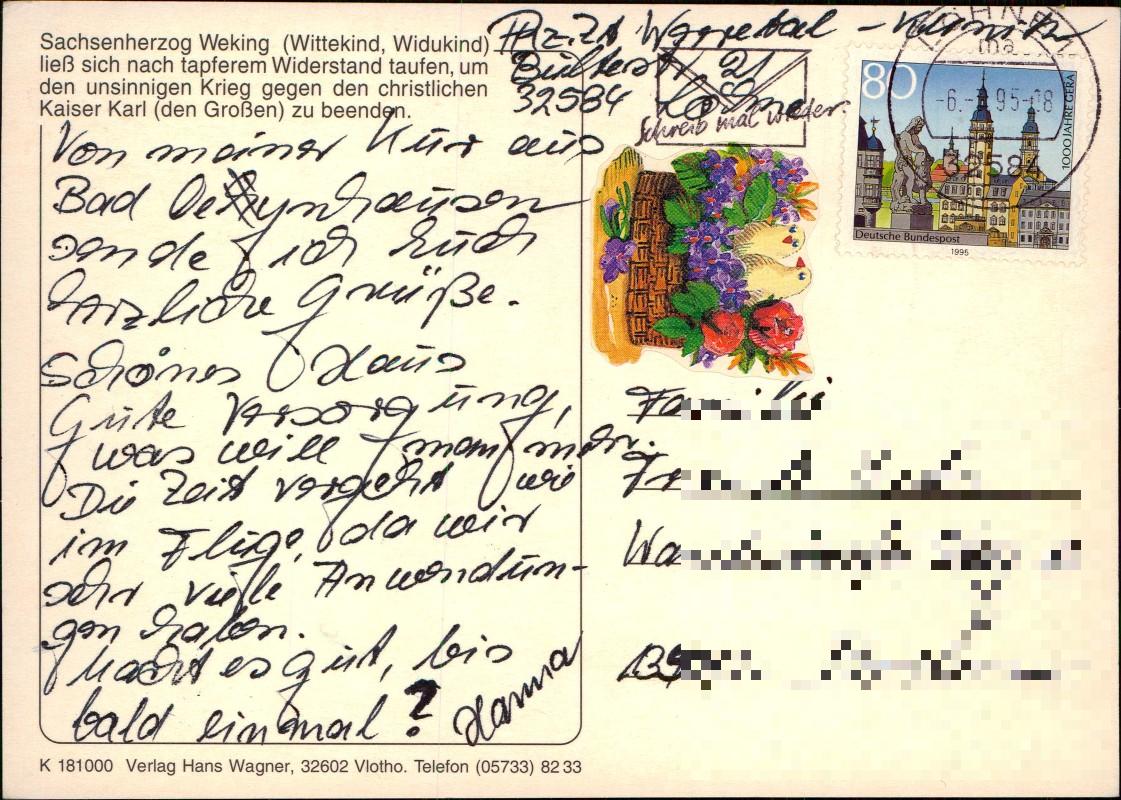 Sachsenherzog Weking (Wittekind, Widukind)
ließ sich nach tapferem Widerstand taufen, um
den unsinnigen Krieg gegen den christlichen
Kaiser Karl (den Großen) zu beenden.
32584 Löhne
Schreib mal wieder.
80
1000 JAHRE GERA
Deutsche Bundespost
1995
-6.- 95-08
32584
Von meiner Kur aus
Bad Oeynhausen
sende ich Euch
herzliche Grüße.
Schönes Haus
Gute Versorgung,
was will man mehr.
Die Zeit vergeht wie
im Fluge, da wir
sehr viele Anwendun-
gen haben.
Macht es gut, bis
bald einmal ?
Hanna
K 181000 Verlag Hans Wagner, 32602 Vlotho. Telefon (05733) 82 33